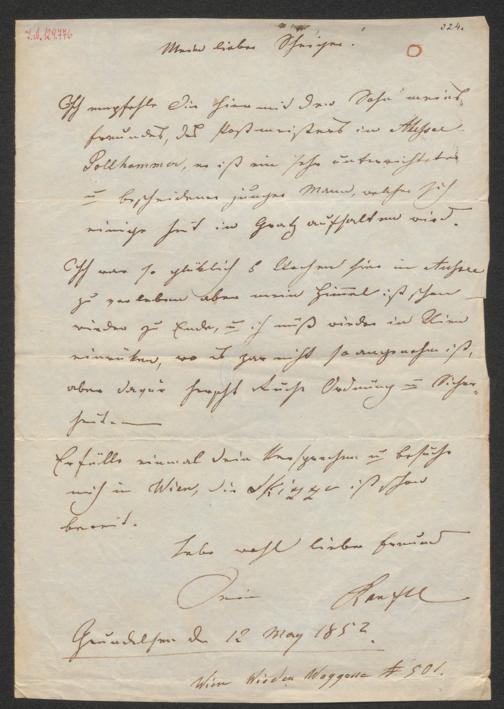 I.N. 129.776
324.
Mein lieber Scheiger!
Ich empfehle Dir hiermit den Sohn meines
Freundes, des Postmeisters in Aussee
, er ist ein sehr unterrichteter
u bescheidener junger Mann, welcher sich
einige Zeit in Gratz aufhalten wird.
Ich war so glücklich 5 Wochen hier in Aussee
zu verleben aber mein Himmel ist schon
wieder zu Ende, u ich muß wieder in Wien
einrücken, wo es zwar nicht so angenehm ist,
aber dagür herscht Ruhe Ordnung u Sicher-
heit. —
Erfülle einmal dein Versprechen u besuche
mich in Wien, die ist schon
bereit.
Lebe wohl lieber Freund
Dein
Grundelsee den 12 May 1852.
Wien Wieden Waaggasse # 501.